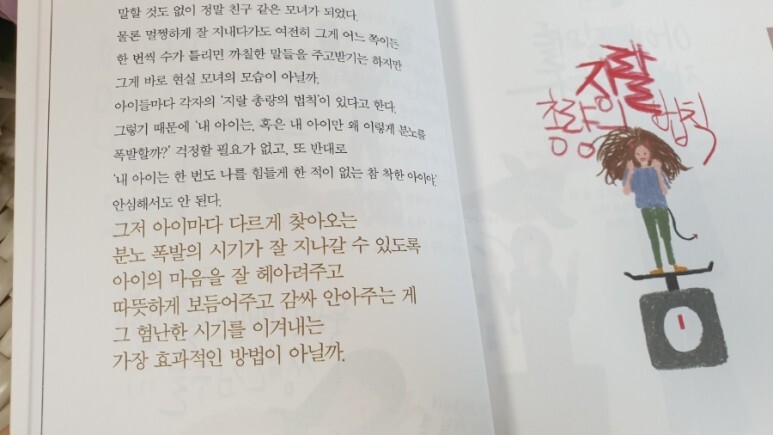 말할 것도 없이 정말 친구 같은 모녀가 되었다.
물론 멀쩡하게 잘 지내다가도 여전히 그게 어느 쪽이든
한 번씩 수가 틀리면 까칠한 말들을 주고받기는 하지만
그게 바로 현실 모녀의 모습이 아닐까.
아이들마다 각자의 '지랄 총량의 법칙'이 있다고 한다.
그렇기 때문에 '내 아이는, 혹은 내 아이만 왜 이렇게 분노를
폭발할까?' 걱정할 필요가 없고, 또 반대로
'내 아이는 한 번도 나를 힘들게 한 적이 없는 참 착한 아이야.'
안심해서도 안 된다.
그저 아이마다 다르게 찾아오는
분노 폭발의 시기가 잘 지나갈 수 있도록
아이의 마음을 잘 헤아려주고
따뜻하게 보듬어주고 감싸 안아주는 게
그 험난한 시기를 이겨내는
가장 효과적인 방법이 아닐까.
지랄
총량의 법칙